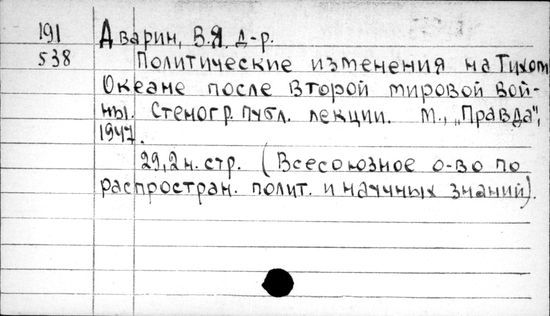 191 Дварин, В.Я. д-р.
538 Политические изменения на Тихом
Океане после второй мировой вой-
ны. Стеногр. публ. лекции. М., „Правда",
1947.
29,2 н. стр. (Всесоюзное о-во по
распростран. полит. и научных знаний).